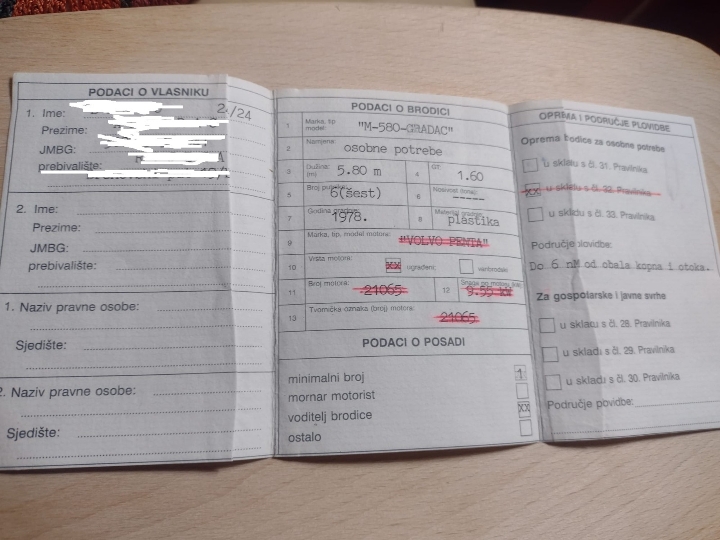 PODACI O VLASNIKU
1. Ime: 2./24
Prezime:
JMBG:
prebivalište:
2. Ime:
Prezime:
JMBG:
prebivalište:
1. Naziv pravne osobe:
Sjedište:
2. Naziv pravne osobe:
Sjedište:
PODACI O BRODICI
1 Marka, tip model: "M-580-GRADAC"
2 Namjena: osobne potrebe
3 Dužina: (m) 5.80 m 4 GT: 1.60
5 Broj putnika: 6(šest) 6 Nosivost -----
7 Godina gradnje: 1978. 8 Materijal gradnje: plastika
9 Marka, tip, model motora: "VOLVO PENTA"
10 Vrsta motora: xx ugrađeni vanbrodski
11 Broj motora: 21065 12 Snaga 9.55 KW
13 Tvornička oznaka (broj) motora: 21065
PODACI O POSADI
minimalni broj 1
mornar motorist
voditelj brodice xx
ostalo
OPREMA I PODRUČJE PLOVIDBE
Oprema brodice za osobne potrebe
u skladu s čl. 31. Pravilnika
xx u skladu s čl. 32. Pravilnika
u skladu s čl. 33. Pravilnika
Područje plovidbe:
Do 6 nM od obala kopna i otoka.
Za gospodarske i javne svrhe
u skladu s čl. 28. Pravilnika
u skladu s čl. 29. Pravilnika
u skladu s čl. 30. Pravilnika
Područje plovidbe: